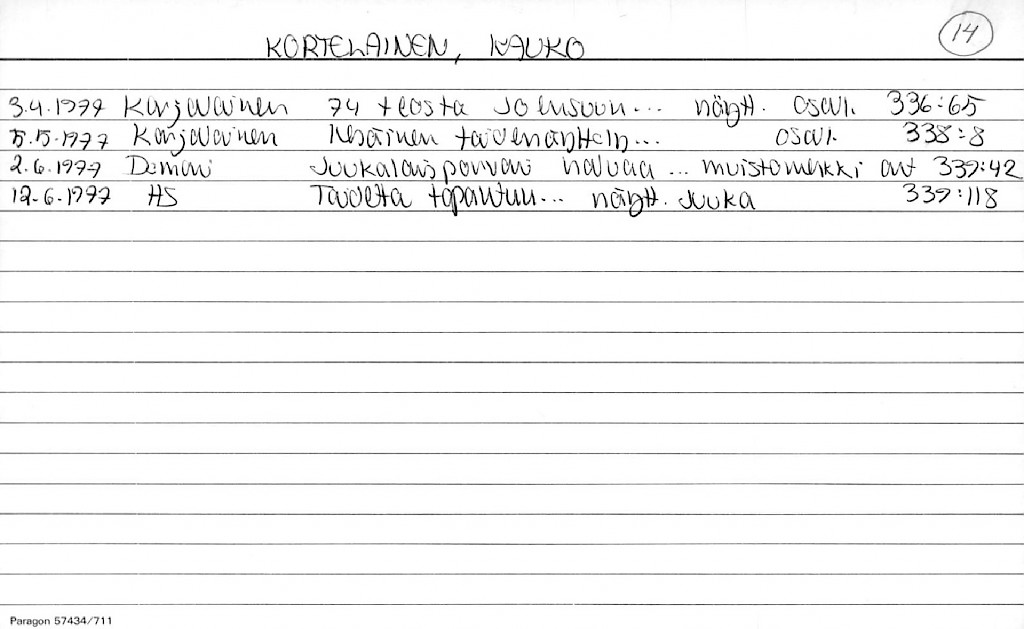 KORTELAINEN, KAUKO
14
3.4.1977 Karjalainen 74 teosta Joensuun... näytt. osall. 336:65
15.5.1977 Karjalainen Kesäinen taidenäyttely... osall. 338:8
2.6.1977 Demari Juukalaisporvari haluaa... muistomerkki art 339:42
12.6.1977 HS Taidetta tapahtuu... näytt. Juuka 339:118
Paragon 57434/711